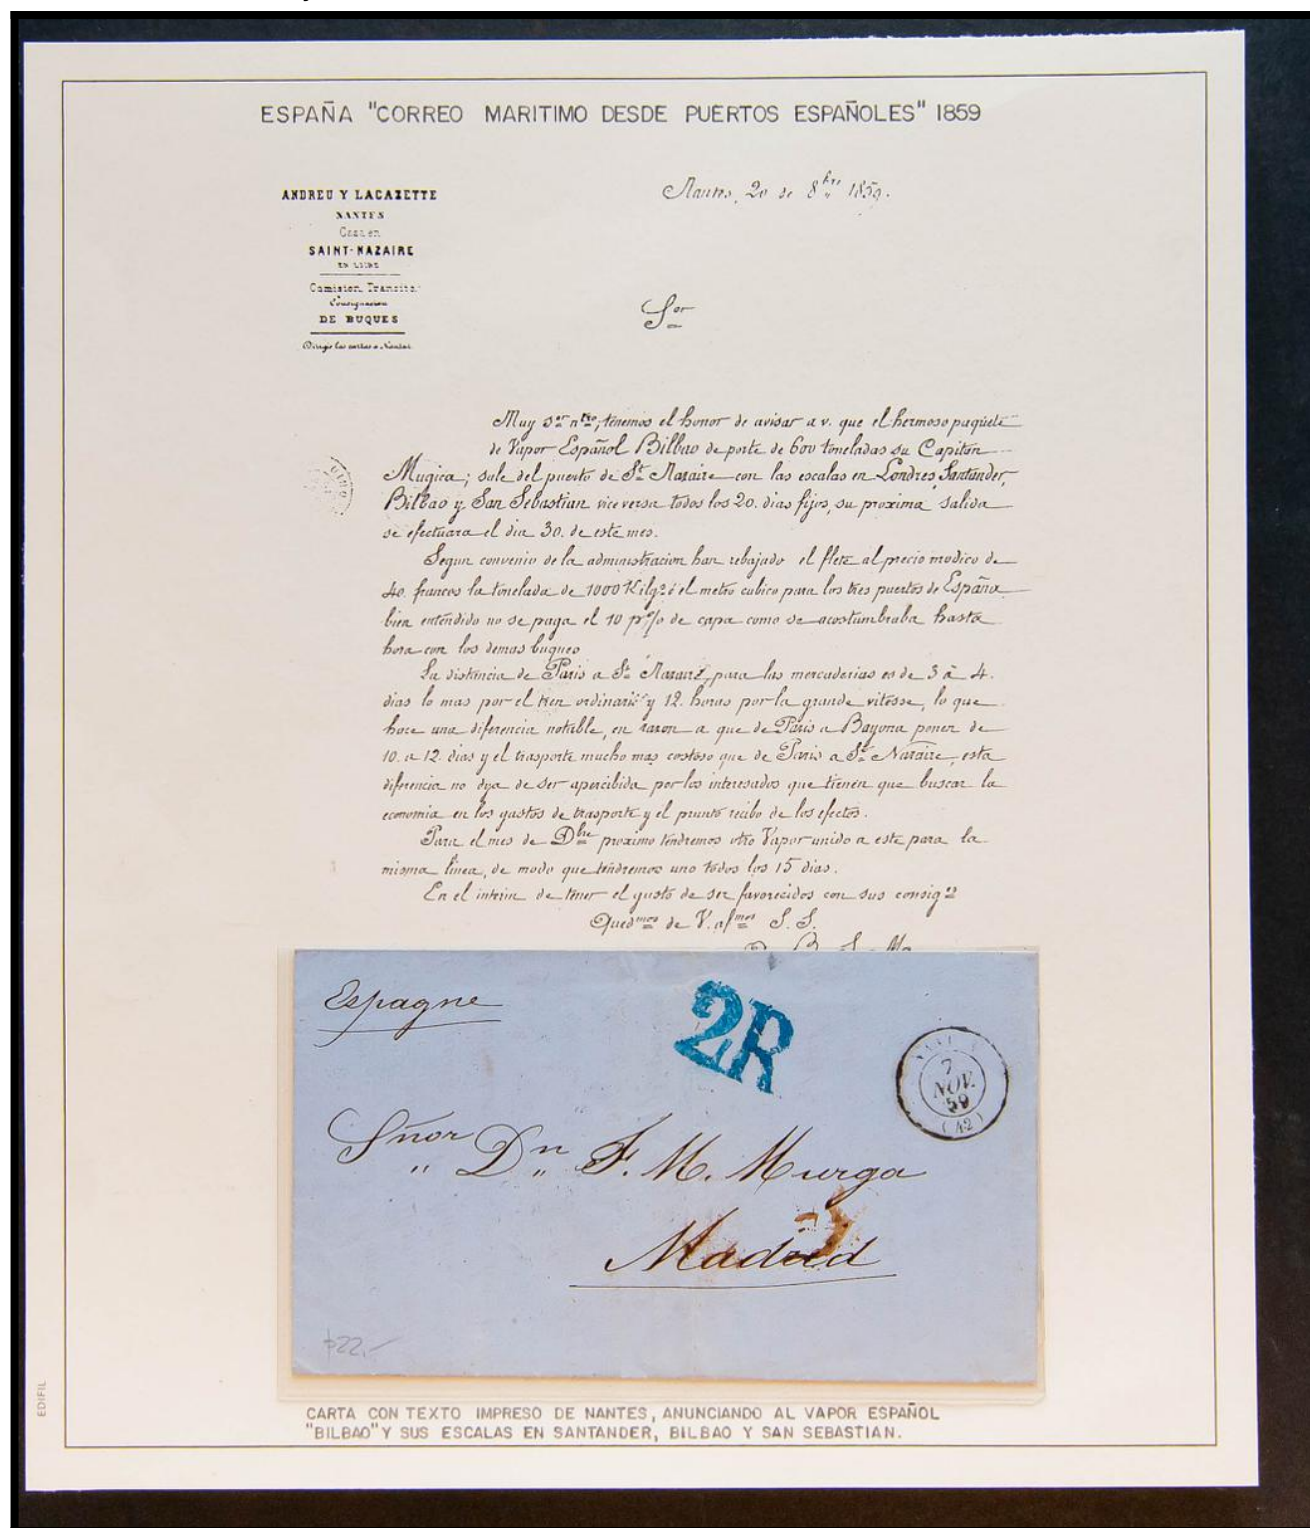 ESPAÑA "CORREO MARITIMO DESDE PUERTOS ESPAÑOLES" 1859
Nantes, 20 de 8bre 1859.
ANDREU Y LACAZETTE
NANTES
Casa en
SAINT-NAZAIRE
Comision, Transito.
Consignacion
DE BUQUES
Dirigir las cartas a Nantes.
Sor
Muy Sor nro; tenemos el honor de avisar a v. que el hermoso paquete
de Vapor Español Bilbao de porte de 600 toneladas su Capitan
Mugica; sale del puerto de St Nazaire con las escalas en Londres, Santander,
Bilbao y San Sebastian vice versa todos los 20. dias fijos, su proxima salida
se efectuara el dia 30. de este mes.
Segun convenio de la administracion han rebajado el flete al precio modico de
40. francos la tonelada de 1000 Kilgs ó el metro cubico para los tres puertos de España
bien entendido no se paga el 10 pr% de capa como se acostumbraba hasta
hora con los demas buques
La distancia de Paris a St Nazaire, para las mercaderias es de 3 à 4.
dias lo mas por el tren ordinario y 12. horas por la grande vitesse, lo que
hace una diferencia notable, en razon a que de Paris a Bayona ponen de
10. a 12. dias y el trasporte mucho mas costoso que de Paris a St Nazaire, esta
diferencia no deja de ser apercibida por los interesados que tienen que buscar la
economia en los gastos de trasporte y el pronto recibo de los efectos.
Para el mes de Dbre proximo tendremos otro Vapor unido a este para la
misma linea, de modo que tendremos uno todos los 15 dias.
En el interin de tener el gusto de ser favorecidos con sus consigs
Quedmos de V. afmos S. S.
Espagne
2R
7
NOV.
59
(42)
Sñor Dn F. M. Murga
Madrid
22.-
EDIFIL
CARTA CON TEXTO IMPRESO DE NANTES, ANUNCIANDO AL VAPOR ESPAÑOL
"BILBAO" Y SUS ESCALAS EN SANTANDER, BILBAO Y SAN SEBASTIAN.